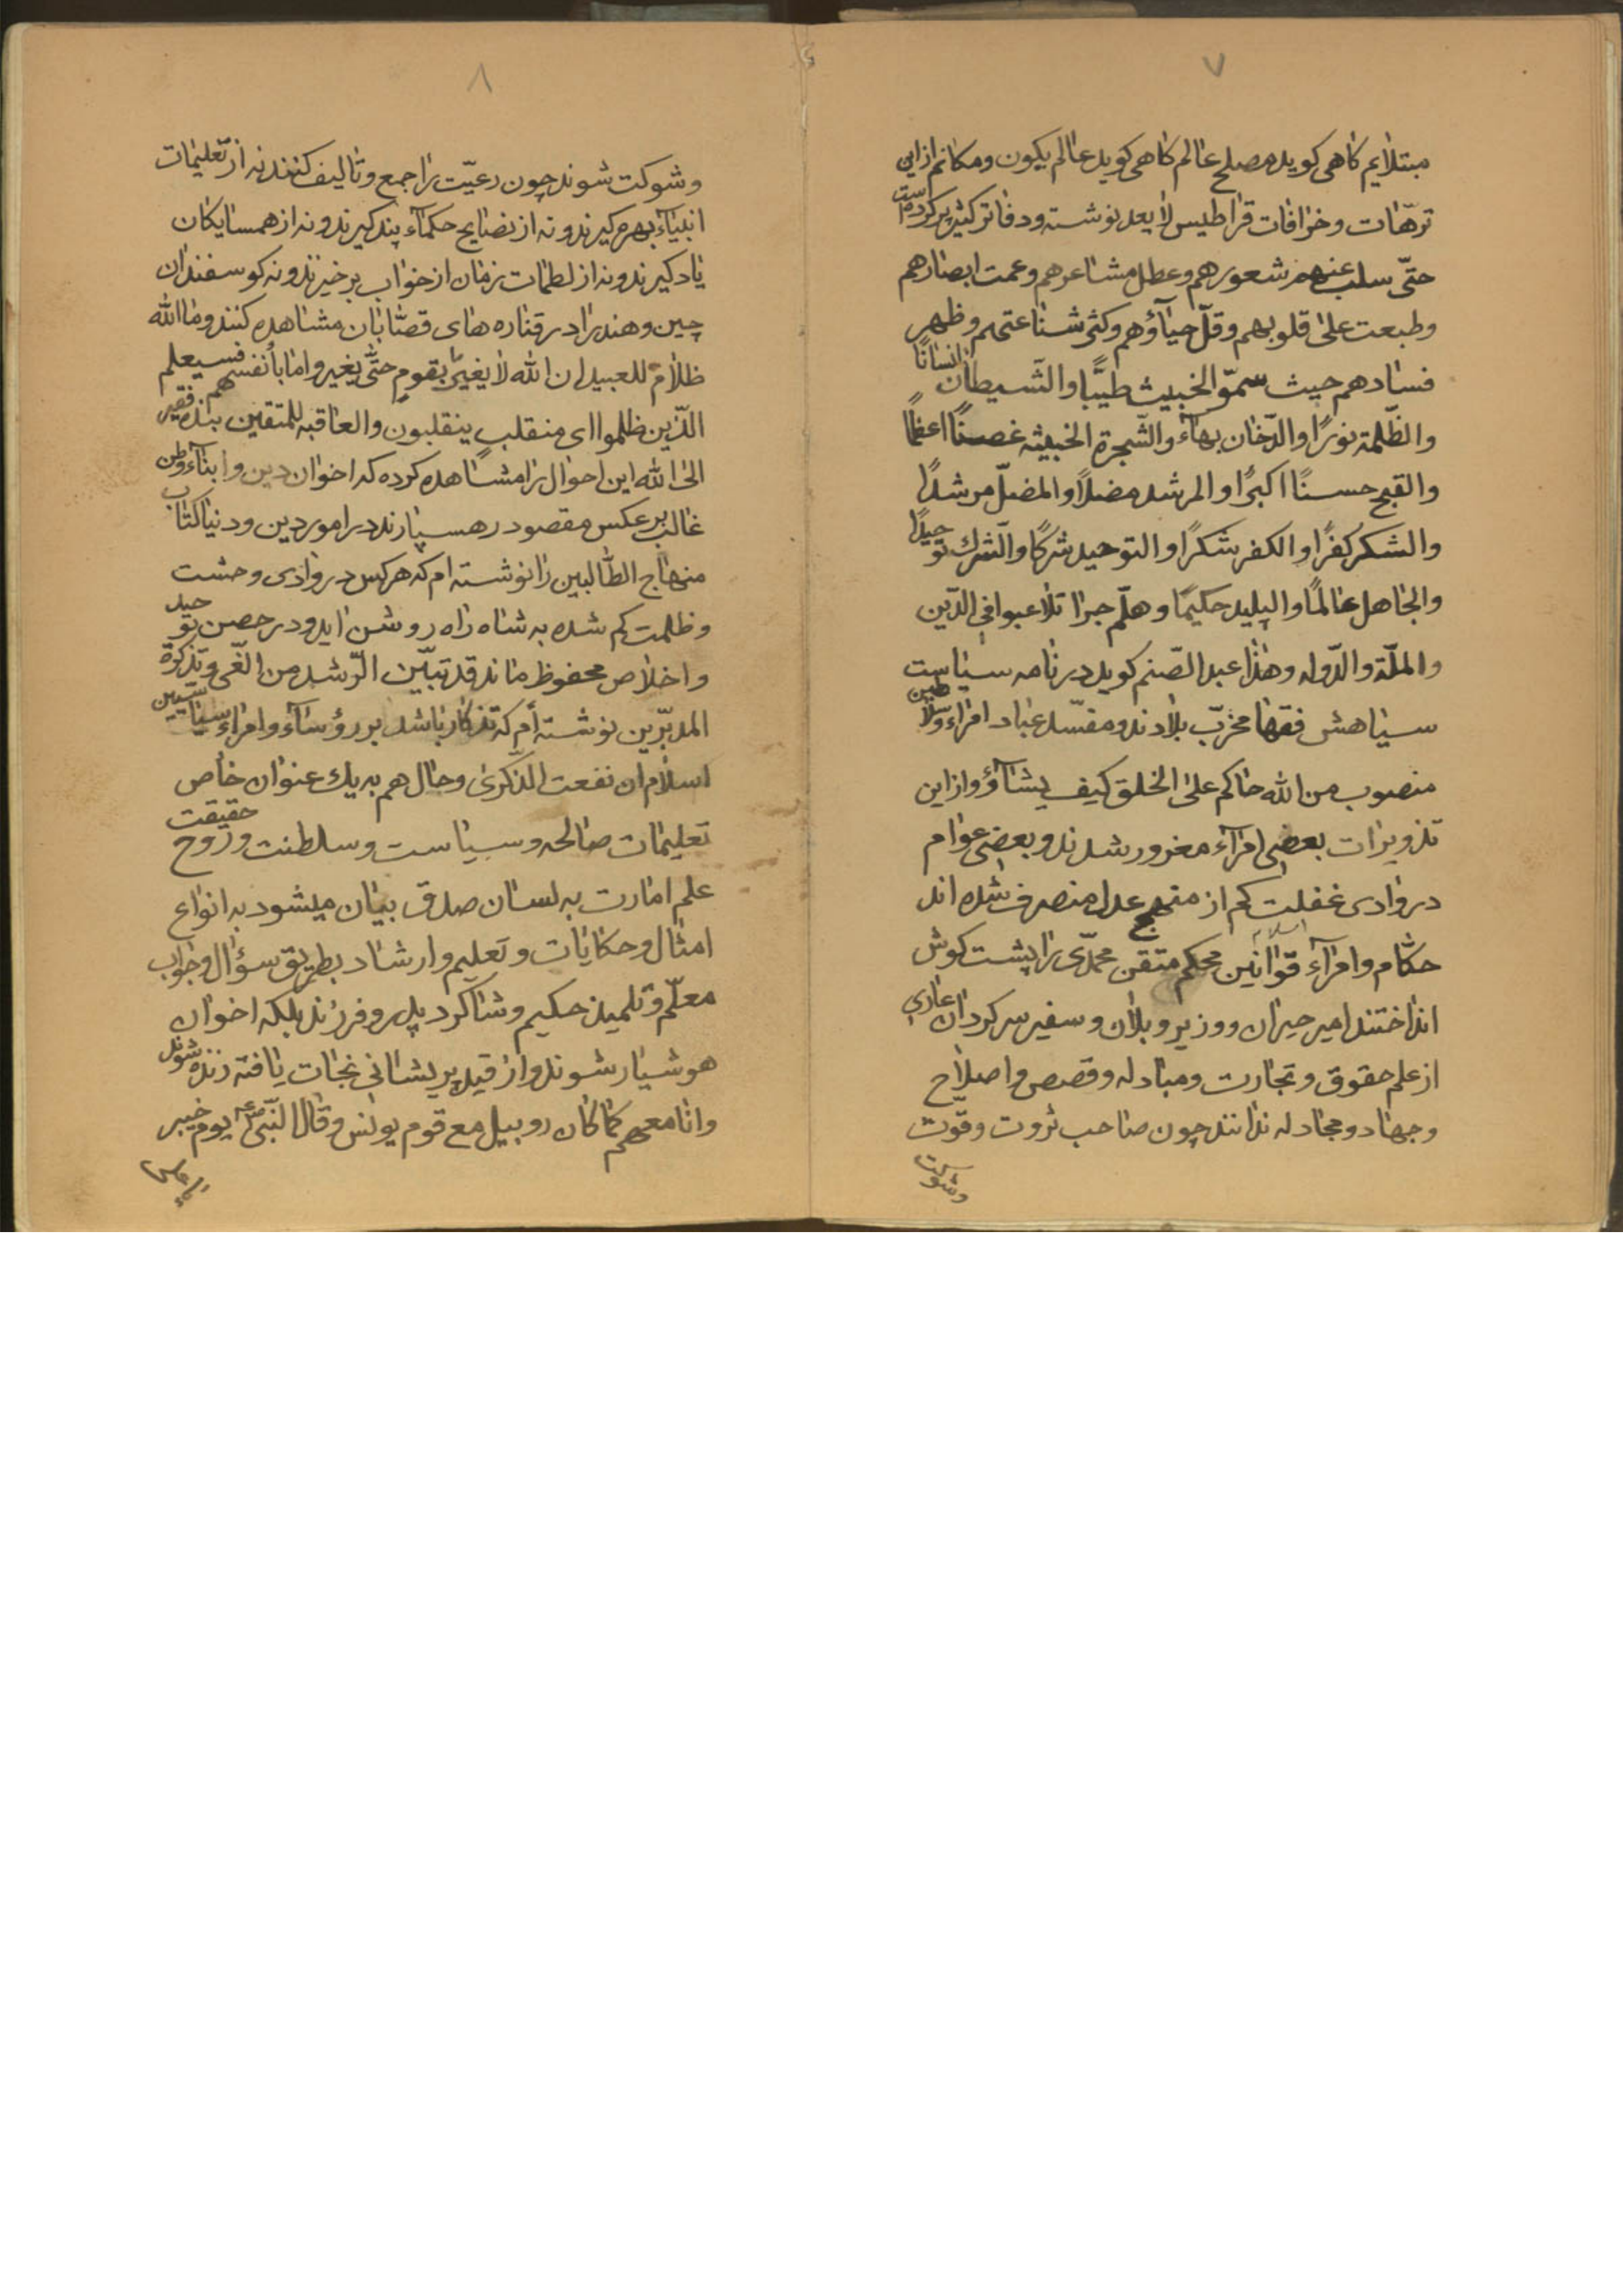 ٧
مبتلایم کاهی کوید مصلح عالم کاهی کوید عالم یکون ومکانم ازاین
ترهّات وخرافات قراطیس لا یعد نوشته ودفاتر کثیر پر کرده است
حتّی سلب عنهم شعورهم وعطل مشاعرهم وعمت ابصارهم
وطبعت علیٰ قلوبهم وقلّ حیآؤهم وکثر شناعتهم وظهر
فسادهم حیث سمّو الخبیث طیّبًا والشّیطان انسانًا
والظّلمة نورًا والدّخان بهاء والشّجرة الخبیثه غصنًا اعظمًا
والقبح حسنًا اکبرًا والمرشد مضلًا والمضلّ مرشدًا
والشکر کفرًا والکفر شکرًا والتوحید شرکًا والشّرك توحیدًا
والجاهل عالمًا والپلید حکیمًا وهلّم جرا تلاعبوا فی الدّین
والملّة والدّوله وهٰذا عبد الصّنم کوید در نامه سیاست
سیاهش فقها مخرّب بلادند ومفسّد عباد امراء وسلاطین
منصوب من الله حاکم علیٰ الخلق کیف یشآؤ وازاین
تذویرات بعضی امرآء مغرور شدند وبعضی عوام
در وادی غفلت کم از منهج عدل منصرف شده اند
حکّام وامرآء اسلام قوانین محکم متقن محمّدی را پشت کوش
انداختند امیر حیران ووزیر ویلان وسفیر سرکردان عاری
از علم حقوق وتجارت ومبادله وقصص واصلاح
وجهاد ومجادله ندانند چون صاحب ثروت وقوّت
وشوکت
٨
وشوکت شوند چون رعیّت را جمع وتالیف کنند نه از تعلیمات
انبیآء بهره کیرند ونه از نصایح حکمآء پند کیرند ونه از همسایکان
یاد کیرند ونه از لطمات زمان از خواب برخیزند ونه کوسفندان
چین وهند را در قناره های قصّابان مشاهده کنند وما الله
ظلّام للعبید ان الله لا یغیّر بقوم حتّی یغیروا ما بأنفسهم فسیعلم
الذّین ظلموا ای منقلب ینقلبون والعاقبه للمتقین بنده فقیر
الی الله این احوال را مشاهده کرده که اخوان دین وابنآء وطن
غالب بر عکس مقصود رهسپارند در امور دین ودنیا کتاب
منهاج الطّالبین را نوشته ام که هر کس در وادی وحشت
وظلمت کم شده به شاه راه روشن اید ودر حصن توحید
واخلاص محفوظ ماند قد تبیّن الرّشد من الغّی وتذکرة
المدبّرین نوشته أم که تذکار باشد بر رؤسآء وامراء سیاسیین
اسلام ان نفعت الذّکری وحال هم به یك عنوان خاص
تعلیمات صالحه وسیاست وسلطنت وروح حقیقت
علم امارت به لسان صدق بیان میشود به انواع
امثال وحکایات وتعلیم وارشاد بطریق سؤال وجواب
معلّم وتلمیذ حکیم وشاکرد پدر وفرزند بلکه اخوان
هوشیار شوند واز قید پریشانی نجات یافته زنده شوند
وانا معهم کما کان روبیل مع قوم یونس وقال النّبی یوم خیبر